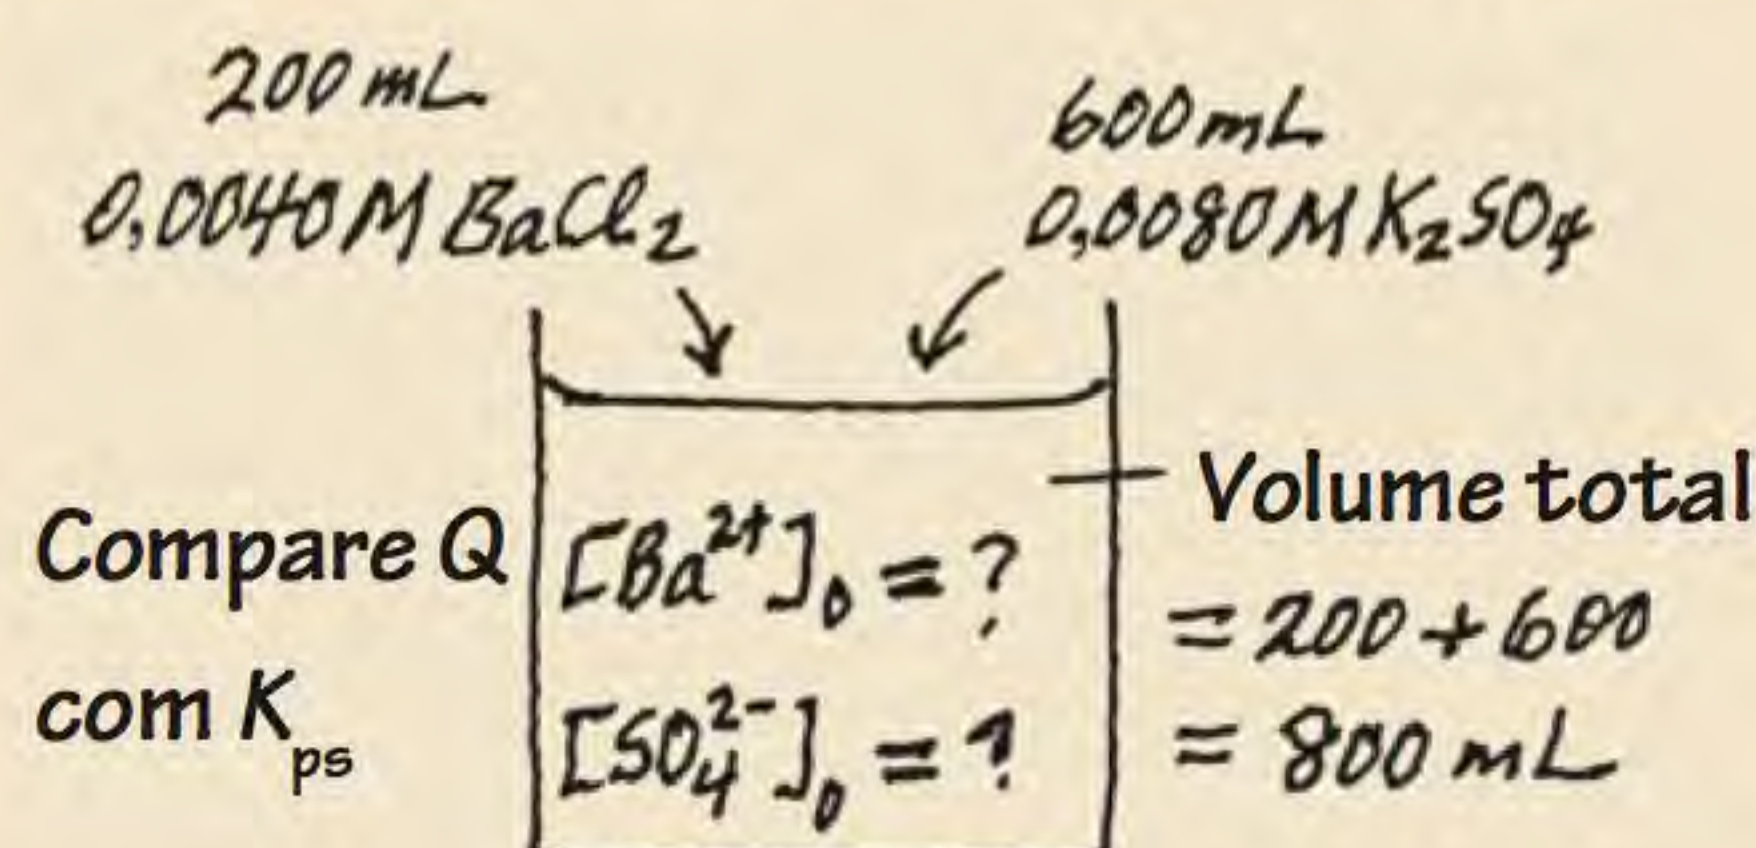 200 mL
0,0040 M BaCl₂
600 mL
0,0080 M K₂SO₄
Compare Q
com K_ps
[Ba²⁺]₀ = ?
[SO₄²⁻]₀ = ?
Volume total
= 200 + 600
= 800 mL